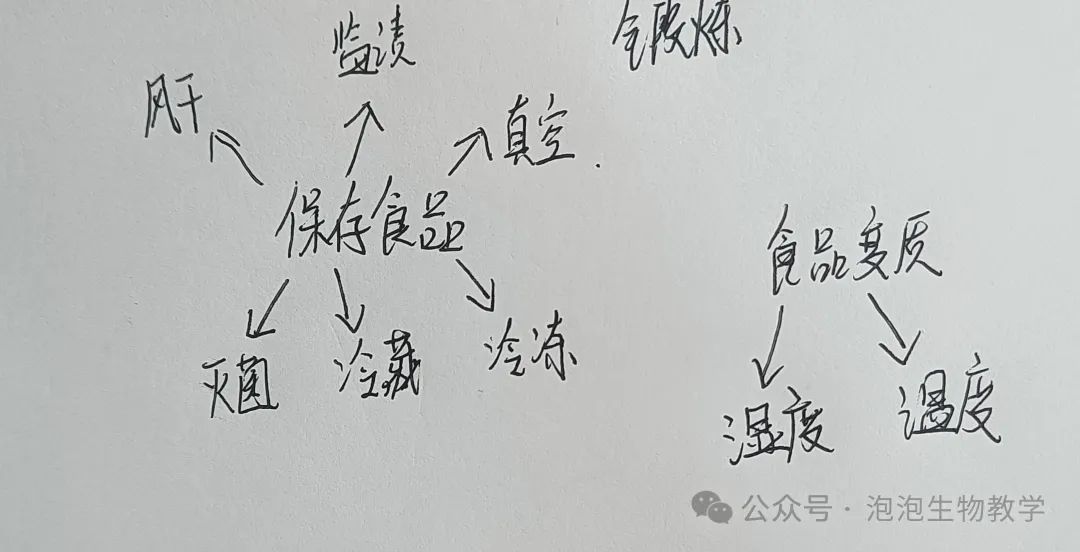 盐渍
锻炼
风干
真空.
保存食品
食品变质
灭菌
冷藏
冷冻
湿度
温度
公众号·泡泡生物教学